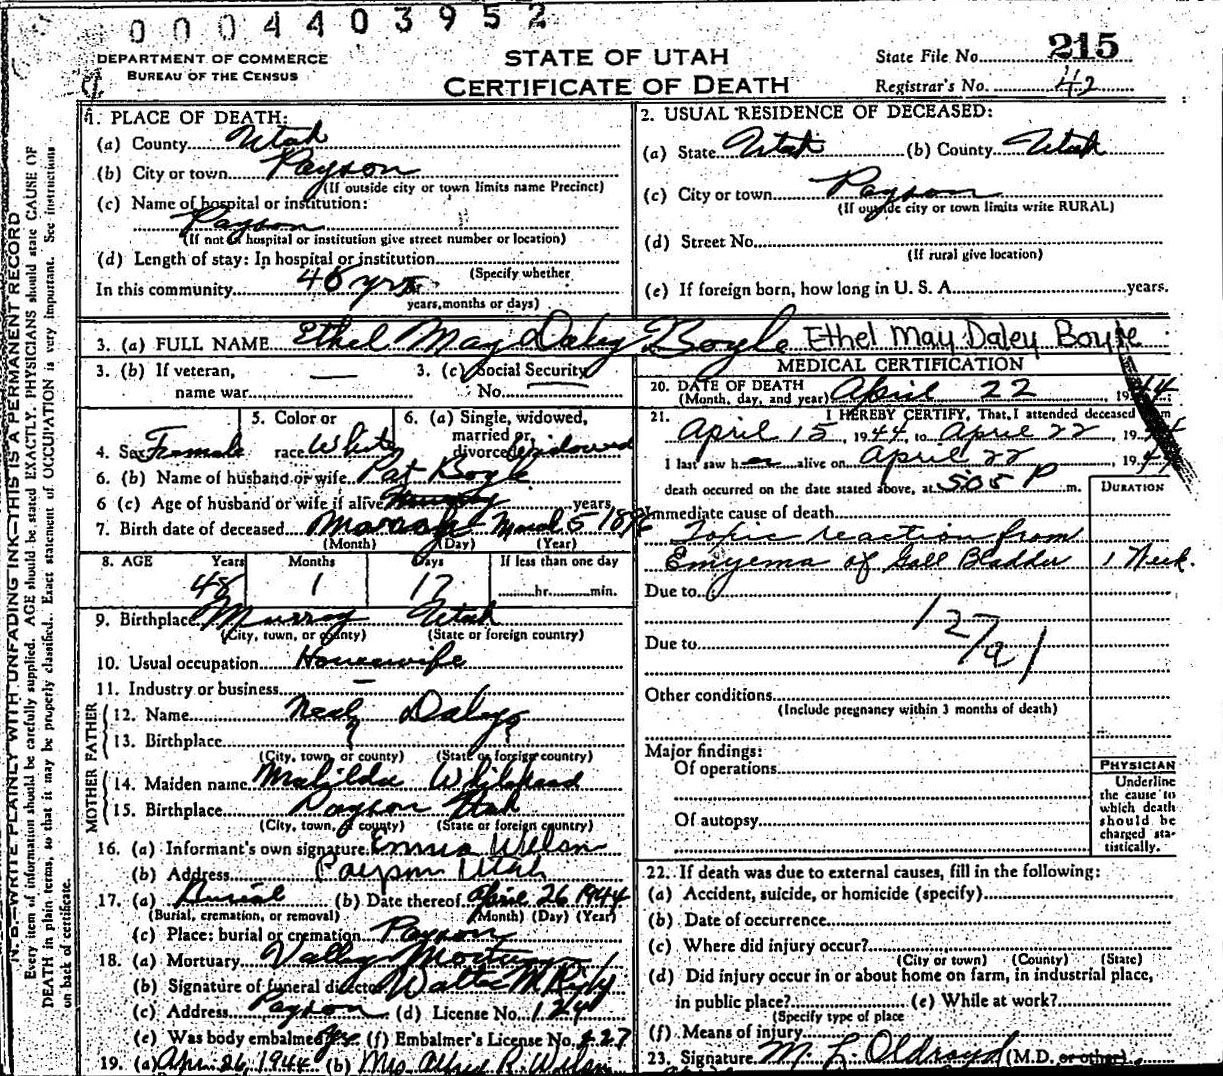 0004403952
DEPARTMENT OF COMMERCE
BUREAU OF THE CENSUS
STATE OF UTAH
CERTIFICATE OF DEATH
State File No. 215
Registrar's No. 42
N. B.—WRITE PLAINLY WITH UNFADING INK—THIS IS A PERMANENT RECORD
Every item of information should be carefully supplied. AGE should be stated EXACTLY. PHYSICIANS should state CAUSE OF
DEATH in plain terms, so that it may be properly classified. Exact statement of OCCUPATION is very important. See instructions
on back of certificate.
1. PLACE OF DEATH:
(a) County Utah
(b) City or town Payson
(If outside city or town limits name Precinct)
(c) Name of hospital or institution:
Payson
(If not in hospital or institution give street number or location)
(d) Length of stay: In hospital or institution
(Specify whether
In this community 48 yrs
years, months or days)
2. USUAL RESIDENCE OF DECEASED:
(a) State Utah (b) County Utah
(c) City or town Payson
(If outside city or town limits write RURAL)
(d) Street No.
(If rural give location)
(e) If foreign born, how long in U. S. A. years.
3. (a) FULL NAME Ethel May Daley Boyle Ethel May Daley Boyle
3. (b) If veteran,
name war —
3. (c) Social Security
No. —
4. Sex Female
5. Color or
race White
6. (a) Single, widowed,
married or
divorced Widowed
6. (b) Name of husband or wife Pat Boyle
6 (c) Age of husband or wife if alive years
7. Birth date of deceased March 5 1896
(Month) (Day) (Year)
8. AGE Years Months Days If less than one day
48 1 17 hr. min.
9. Birthplace Murray Utah
(City, town, or county) (State or foreign country)
10. Usual occupation Housewife
11. Industry or business —
FATHER
12. Name Daley
13. Birthplace ? ?
(City, town, or county) (State or foreign country)
MOTHER
14. Maiden name Matilda
15. Birthplace Payson Utah
(City, town, or county) (State or foreign country)
16. (a) Informant's own signature Emma Wilson
(b) Address Payson Utah
17. (a) Burial (b) Date thereof April 26 1944
(Burial, cremation, or removal) (Month) (Day) (Year)
(c) Place: burial or cremation Payson
18. (a) Mortuary Valley Mortuary
(b) Signature of funeral director Walter M.
(c) Address Payson (d) License No. 124
(e) Was body embalmed yes (f) Embalmer's License No. 227
19. (a) Apr. 26, 1944 (b) Mrs Alfred R. Wilson
MEDICAL CERTIFICATION
20. DATE OF DEATH
(Month, day, and year) April 22, 1944
21. I HEREBY CERTIFY, That I attended deceased from
April 15, 1944, to April 22, 1944
I last saw her alive on April 22, 1944
death occurred on the date stated above, at 5:05 P m.
DURATION
Immediate cause of death
Toxic reaction from
Emyema of Gall Bladder 1 Week.
Due to
Due to
127a1
Other conditions
(Include pregnancy within 3 months of death)
Major findings:
Of operations
Of autopsy
PHYSICIAN
Underline
the cause to
which death
should be
charged sta-
tistically.
22. If death was due to external causes, fill in the following:
(a) Accident, suicide, or homicide (specify)
(b) Date of occurrence
(c) Where did injury occur?
(City or town) (County) (State)
(d) Did injury occur in or about home on farm, in industrial place,
in public place? (e) While at work?
(Specify type of place
(f) Means of injury
23. Signature M. L. Oldroyd (M.D. or other)